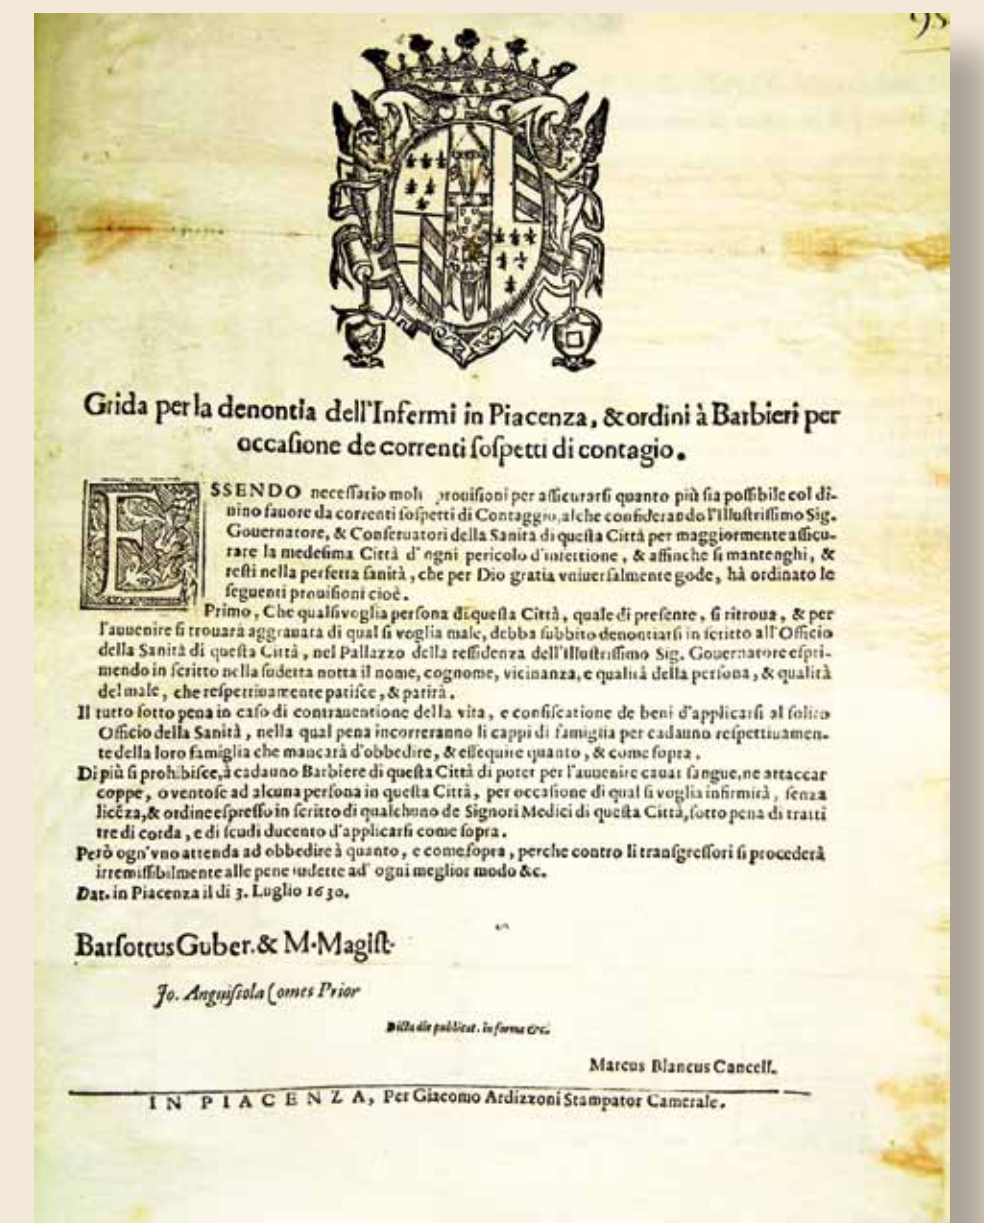 95
Grida per la denontia dell'Infermi in Piacenza, & ordini à Barbieri per
occaſione de correnti ſoſpetti di contagio.
ESSENDO neceſſario molt prouiſioni per aſſicurarſi quanto più ſia poſſibile col di-
uino fauore da correnti ſoſpetti di Contaggio, alche conſiderando l'Illuſtriſſimo Sig.
Gouernatore, & Conſeruatori della Sanità di queſta Città per maggiormente aſſicu-
rare la medeſima Città d'ogni pericolo d'infettione, & affinche ſi mantenghi, &
reſti nella perfetta ſanità, che per Dio gratia vniuerſalmente gode, hà ordinato le
ſeguenti prouiſioni cioè.
Primo, Che qualſivoglia perſona di queſta Città, quale di preſente, ſi ritroua, & per
l'auuenire ſi trouarà aggrauata di qual ſi voglia male, debba ſubbito denontiarſi in ſcritto all'Officio
della Sanità di queſta Città, nel Pallazzo della reſſidenza dell'Illuſtriſſimo Sig. Gouernatore eſpri-
mendo in ſcritto nella ſudetta notta il nome, cognome, vicinanza, e qualità della perſona, & qualità
del male, che reſpettiuamente patiſce, & patirà.
Il tutto ſotto pena in caſo di contrauentione della vita, e confiſcatione de beni d'applicarſi al ſolito
Officio della Sanità, nella qual pena incorreranno li cappi di famiglia per cadauno reſpettiuamen-
te della loro famiglia che mancarà d'obbedire, & eſſequire quanto, & come ſopra.
Di più ſi prohibiſce, à cadauno Barbiere di queſta Città di poter per l'auuenire cauar ſangue, ne attaccar
coppe, o ventoſe ad alcuna perſona in queſta Città, per occaſione di qual ſi voglia infirmità, ſenza
licẽza, & ordine eſpreſſo in ſcritto di qualchuno de Signori Medici di queſta Città, ſotto pena di tratti
tre di corda, e di ſcudi ducento d'applicarſi come ſopra.
Però ogn'vno attenda ad obbedire à quanto, e come ſopra, perche contro li tranſgreſſori ſi procederà
irremiſſibilmente alle pene ſudette ad' ogni meglior modo &c.
Dat. in Piacenza il di 3. Luglio 1630.
Barſottus Guber. & M. Magiſt.
Jo. Anguiſſola Comes Prior
Dicta die publicat. in forma &c.
Marcus Blancus Cancell.
IN PIACENZA, Per Giacomo Ardizzoni Stampator Camerale.